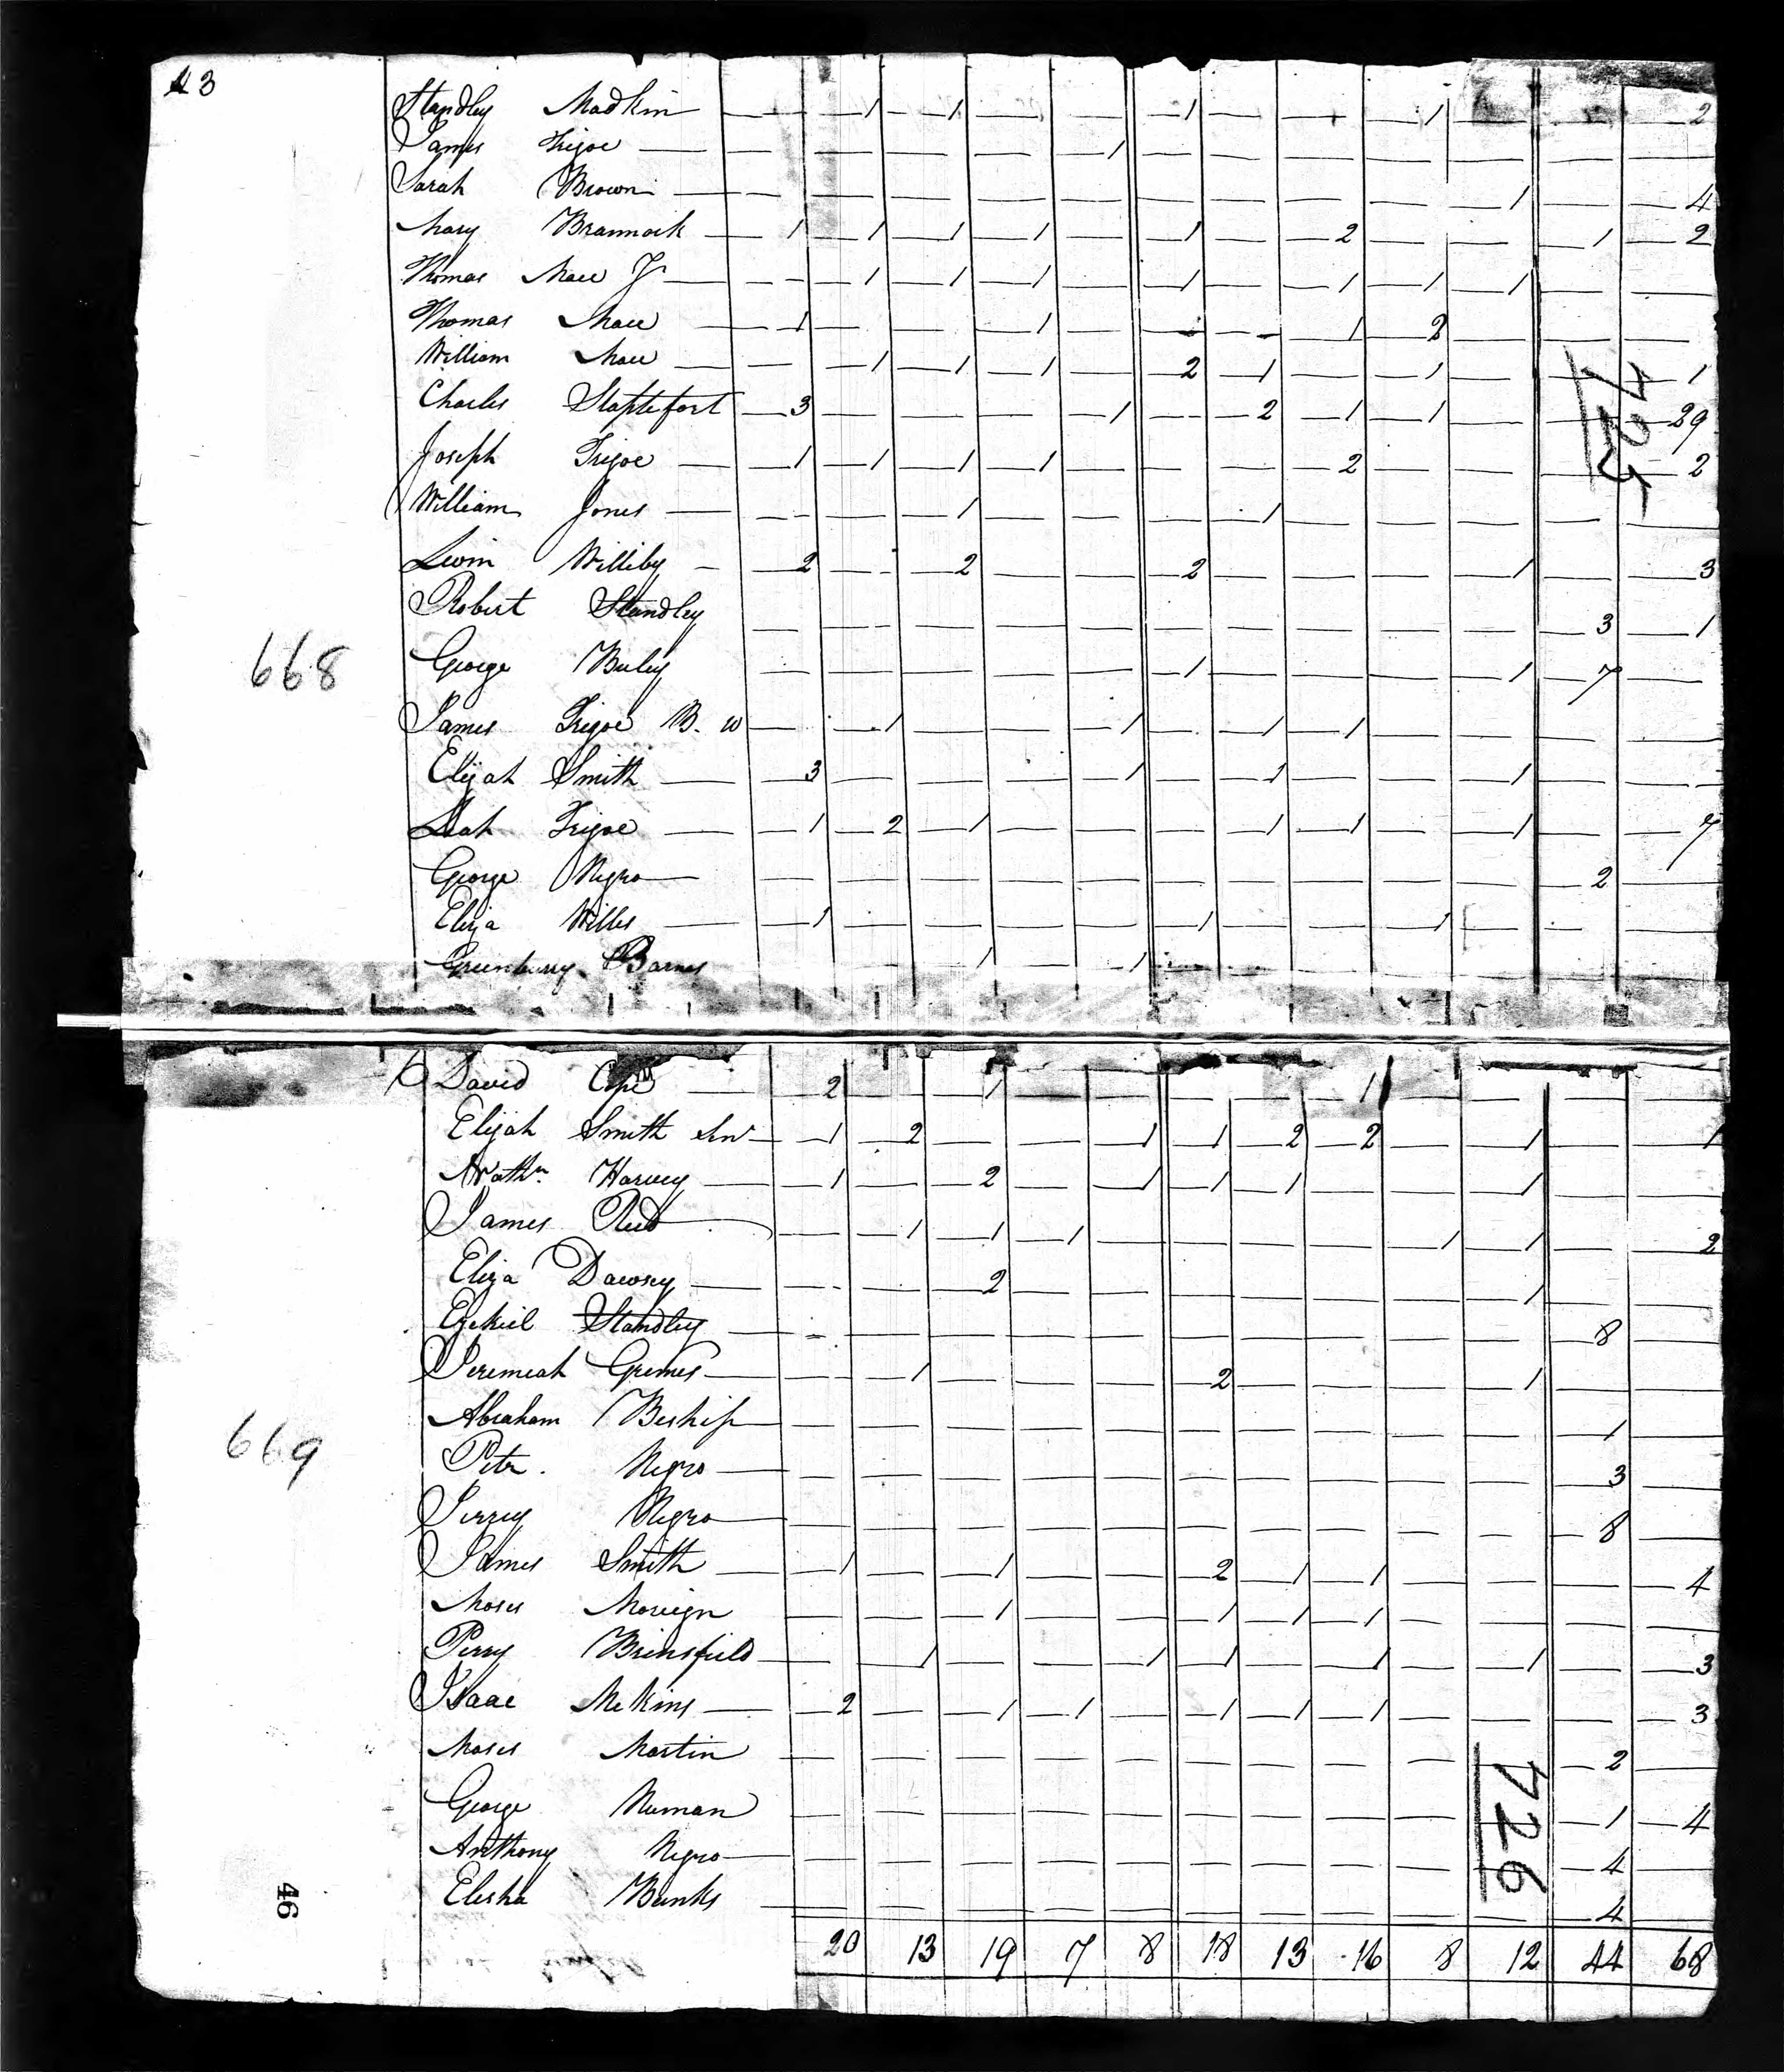 43
Standley Madkin — — 1 — 1 — — 1 — — 1 — — 2
James Trigoe — — — — — 1 — — — — — — —
Sarah Brown — — — — — — — — — — 1 — 4
Mary Brannock — 1 — 1 — 1 — 1 — 1 — 2 — — 1 — 2
Thomas Mace Jr — — 1 — 1 — 1 — 1 — 1 — 1 — 1 — —
Thomas Mace — 1 — — — 1 — — — 1 2 — — —
William Mace — — 1 — 1 — 1 — 2 — 1 — — 1 — — 1
Charles Staplefort — 3 — — — — 1 — — 2 — 1 — 1 — — 29
Joseph Trigoe — 1 — 1 — 1 — 1 — — — 2 — — — 2
William Jones — — — 1 — — — 1 — — — — —
Levin Williby — 2 — — 2 — — 2 — — — 1 — 3
Robert Standley — — — — — — — — — — 3 — 1
George Buley — — — — — 1 — — — 1 — 7 —
James Trigoe B. W — — 1 — — 1 — — 1 — 1 — — — —
Elijah Smith — 3 — — — — 1 — — 1 — — 1 — —
Leah Trigoe — 1 — 2 — 1 — — — 1 — 1 — — 1 — 7
George Negro — — — — — — — — — — 2 —
Eliza Willes — 1 — — — — 1 — — 1 — — —
Greenburry Barnes 1 1
725
668
David Cope — 2 — 1 — 1 — — —
Elijah Smith Snr — 1 — 2 — — — 1 — 1 2 — 2 — — 1 — 1
Nathn. Harvey — 1 — — 2 — — 1 — 1 — 1 — — 1 — —
James Reed — — 1 — 1 — 1 — — — — 1 — 1 — 2
Eliza Dawsey — — — 2 — — — — — — 1 — —
Ezekiel Standley — — — — — — — — — — 8 —
Jeremiah Grimes — — 1 — — — 2 — — — 1 — —
Abraham Beship — — — — — — — — — — 1 —
Petr. Negro — — — — — — — — — — 3 —
Jerrey Negro — — — — — — — — — — 8 —
James Smith — 1 — — 1 — — 2 — 1 — 1 — — — 4
Moses — — — 1 — — 1 — 1 — 1 — — — —
Perry Brinsfield — — 1 — — — 1 — 1 — — 1 — 1 — 3
Isaac Mekins — 2 — — 1 — 1 — — 1 — 1 — 1 — — — 3
Moses Martin — — — — — — — — — 2 —
George Numan — — — — — — — — — — 1 — 4
Anthony Negro — — — — — — — — — — 4 —
Elisha Banks — — — — — — — — — — 4
669
726
46
20 13 19 7 8 18 13 16 8 12 44 68